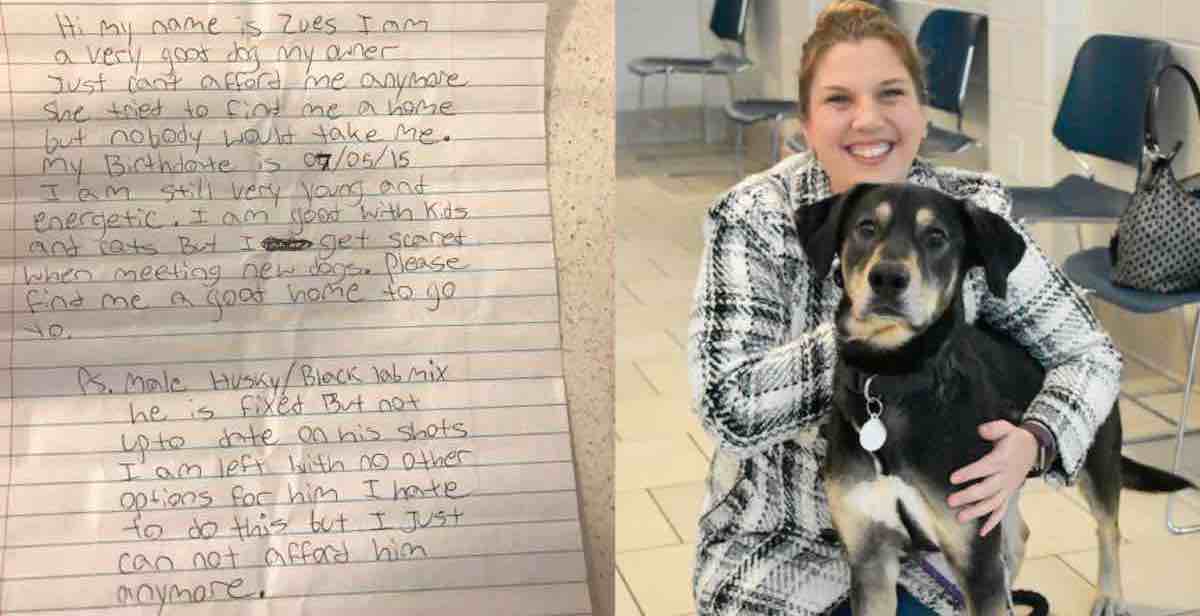 Hi my name is Zues I am
a very good dog my owner
Just cant afford me anymore
She tried to find me a home
but nobody would take me.
my Birthdate is 07/05/15
I am still very young and
energetic. I am good with Kids
and cats But I get scared
when meeting new dogs. Please
find me a good home to go
to.
Ps. Male Husky/Black lab mix
he is fixed But not
up to date on his shots
I am left with no other
options for him I hate
to do this but I Just
can not afford him
anymore.